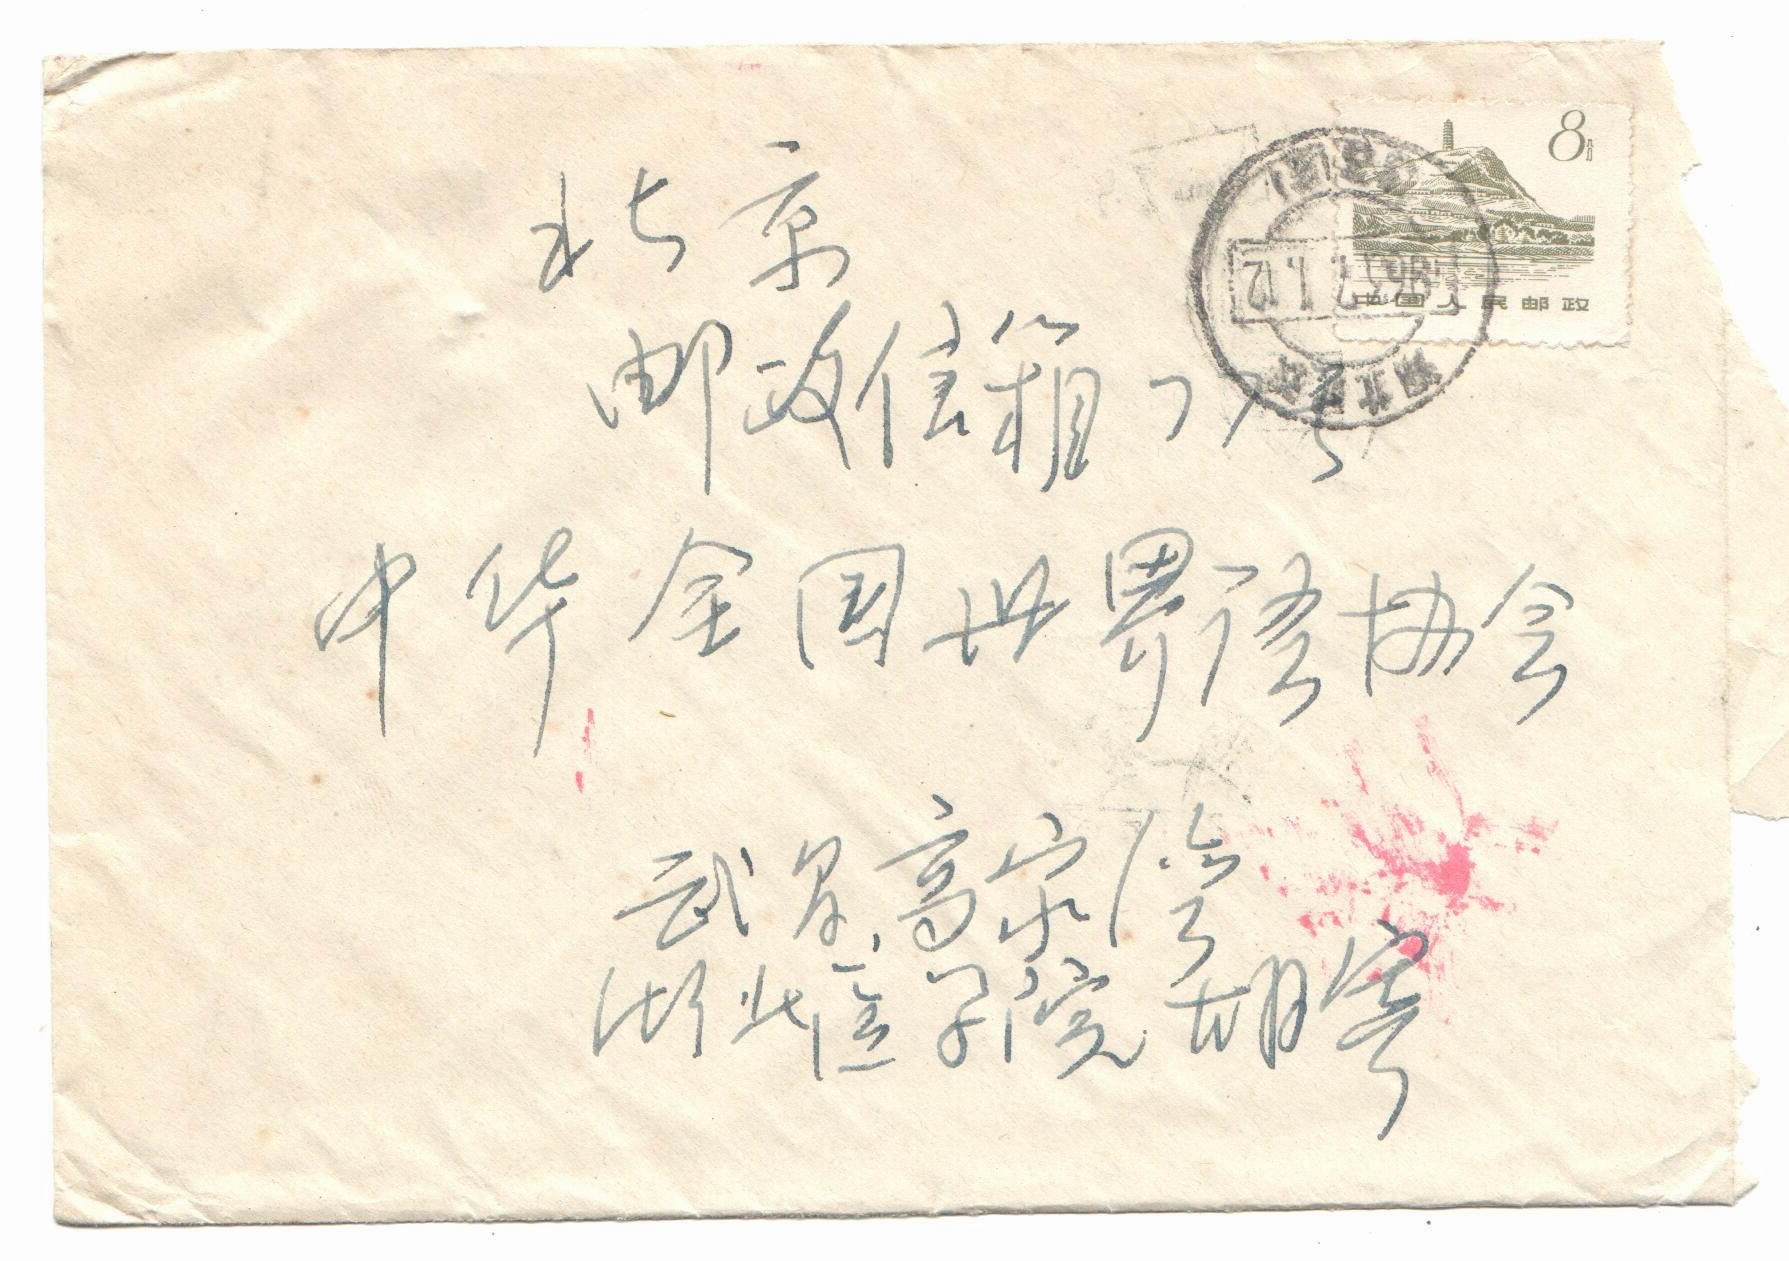 8分
中国人民邮政
北京
邮政信箱77号
中华全国世界语协会
武昌高家湾
湖北医学院胡寄